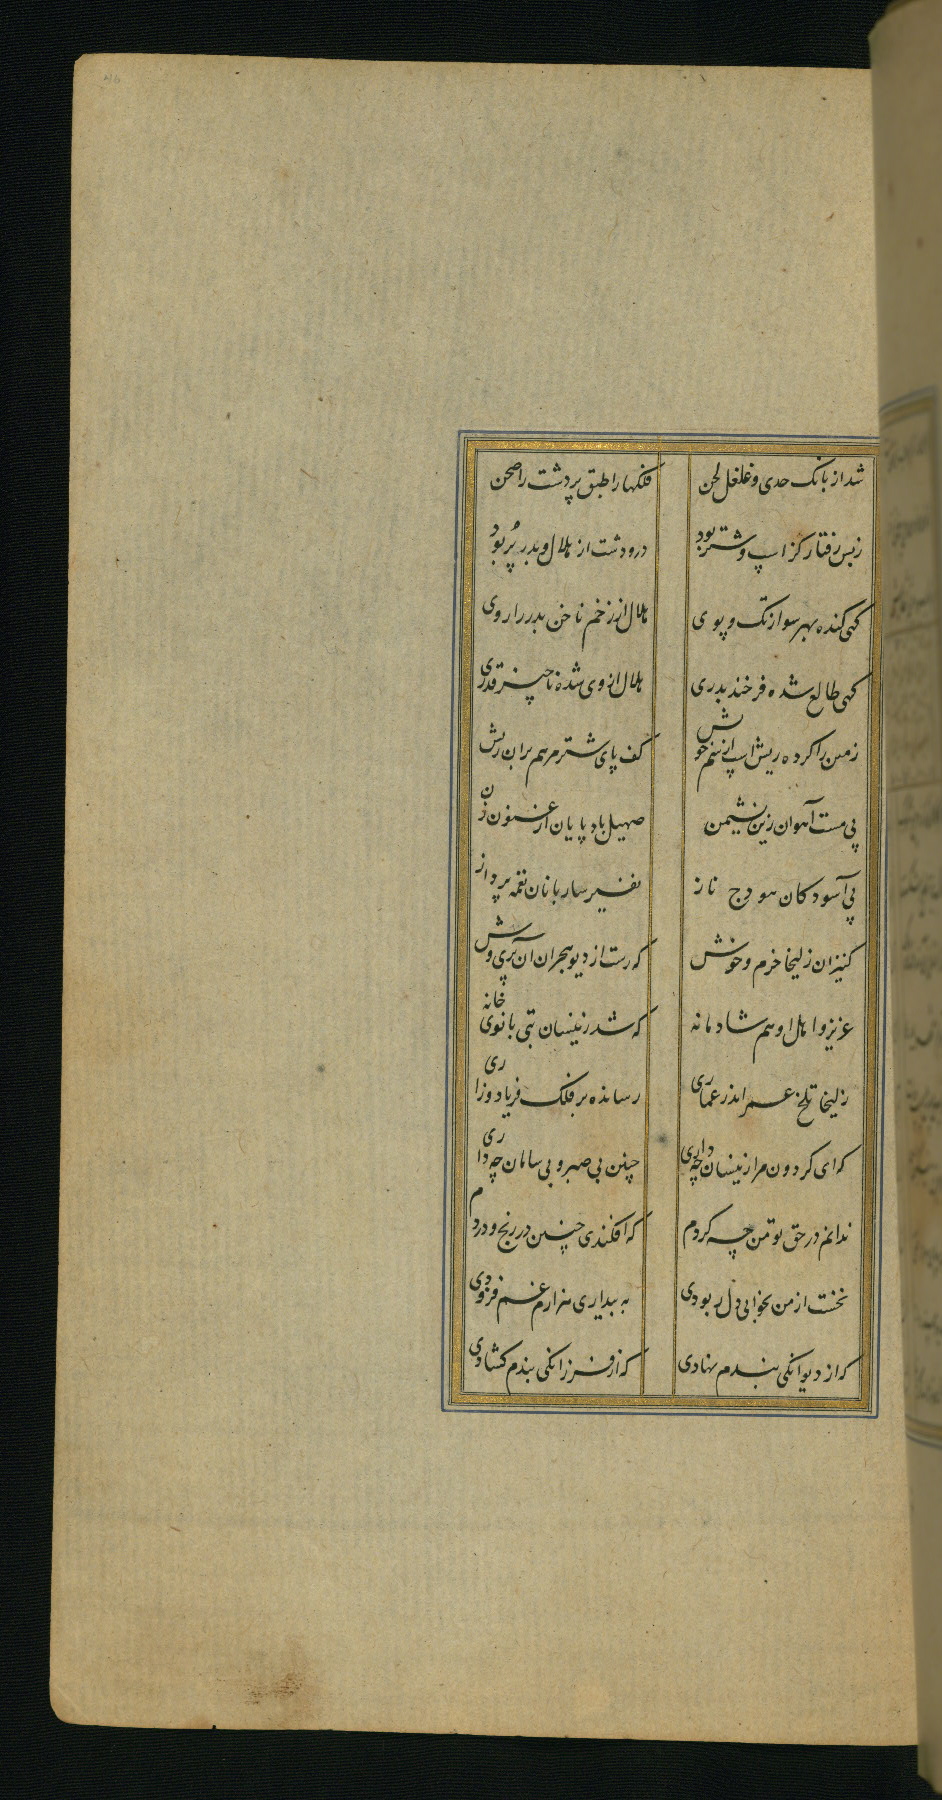 شد از بانک حدی و غلغل لحن فلکها را طبق پر دشت را صحن
ز بس رفتار کز اسپ و شتر بود در و دشت از هلال و بدر پُر بود
کهی کنده بهر سو از تک و پوی هلال از زخم ناخن بدر را روی
کهی طالع شده فرخنده بدری هلال از وی شده ناچیز قدری
زمین را کرده ریش اسپ از سم خویش کف پای شتر مرهم بر ان ریش
پی مست آهوان زین نشیمن صهیل باد پایان ارغنون زن
پی آسودکان هودج ناز نفیر ساربانان نغمه پرداز
کنیزان زلیخا خرم و خوش که رست از دیو هجران آن پری وش
عزیز و اهل او هم شادمانه که شد زینسان بتی بانوی خانه
زلیخا تلخ عمر اندر عماری رسانده بر فلک فریاد و زاری
که ای کردون مرا زینسان چه داری چنین بی صبر و بی سامان چه داری
ندانم در حق تو من چه کردم که افکندی چنین در رنج و دردم
نخست از من بخوابی دل ربودی به بیداری هزارم غم فزودی
که از دیوانکی بندم نهادی که از فرزانکی بندم کشادی